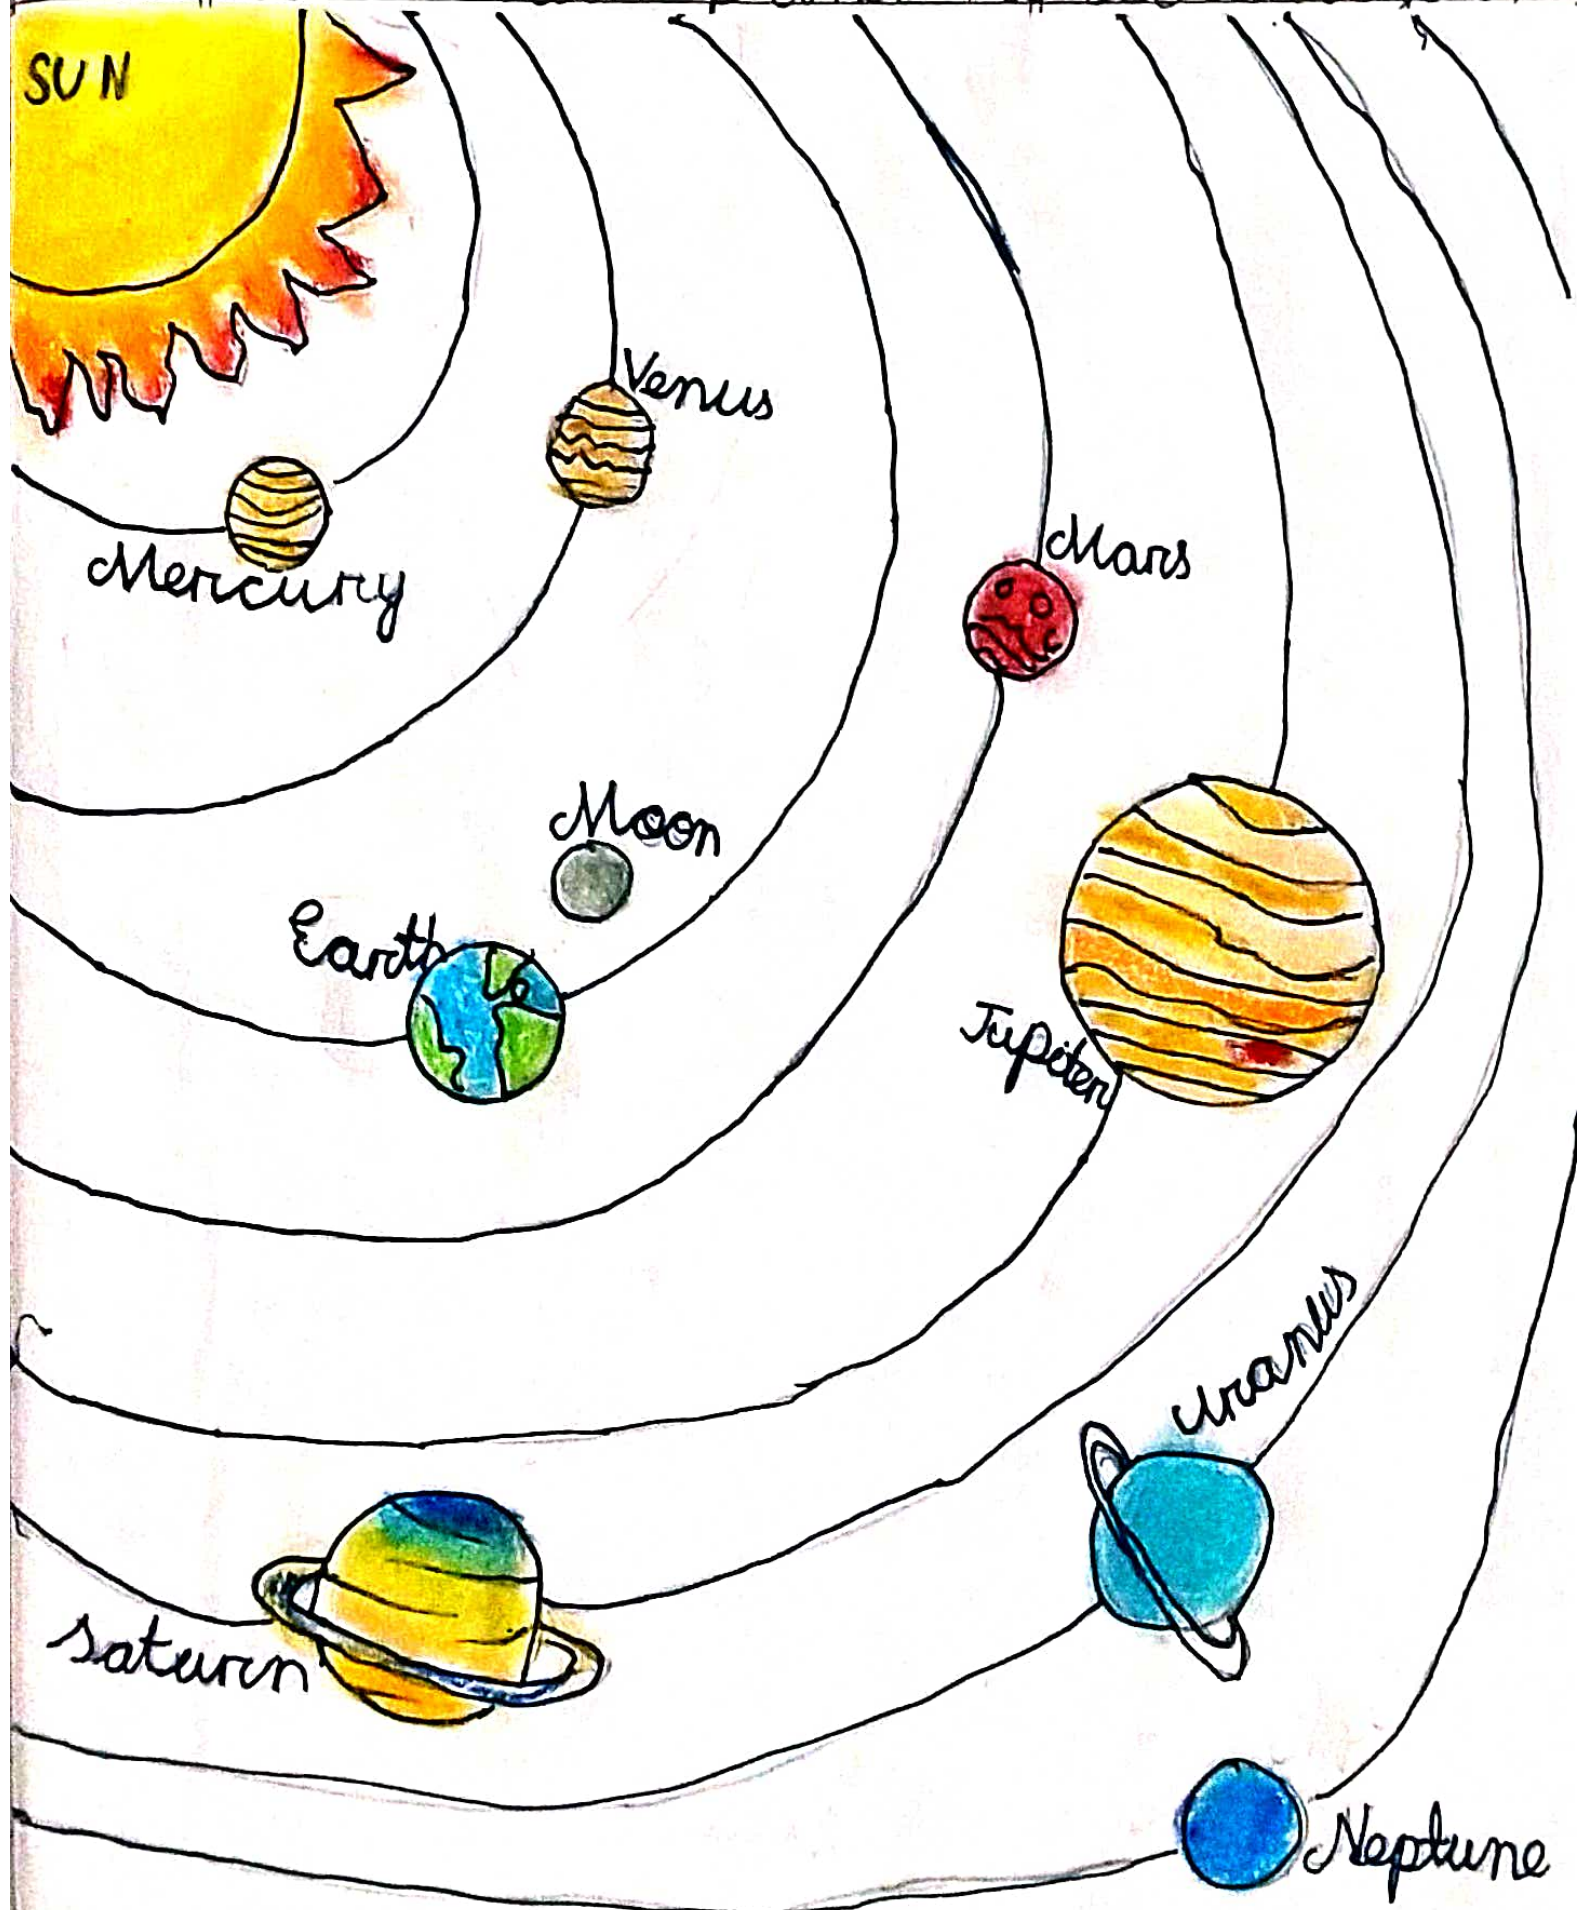 SUN
Venus
Mars
Mercury
Moon
Earth
Jupiter
Uranus
Saturn
Neptune